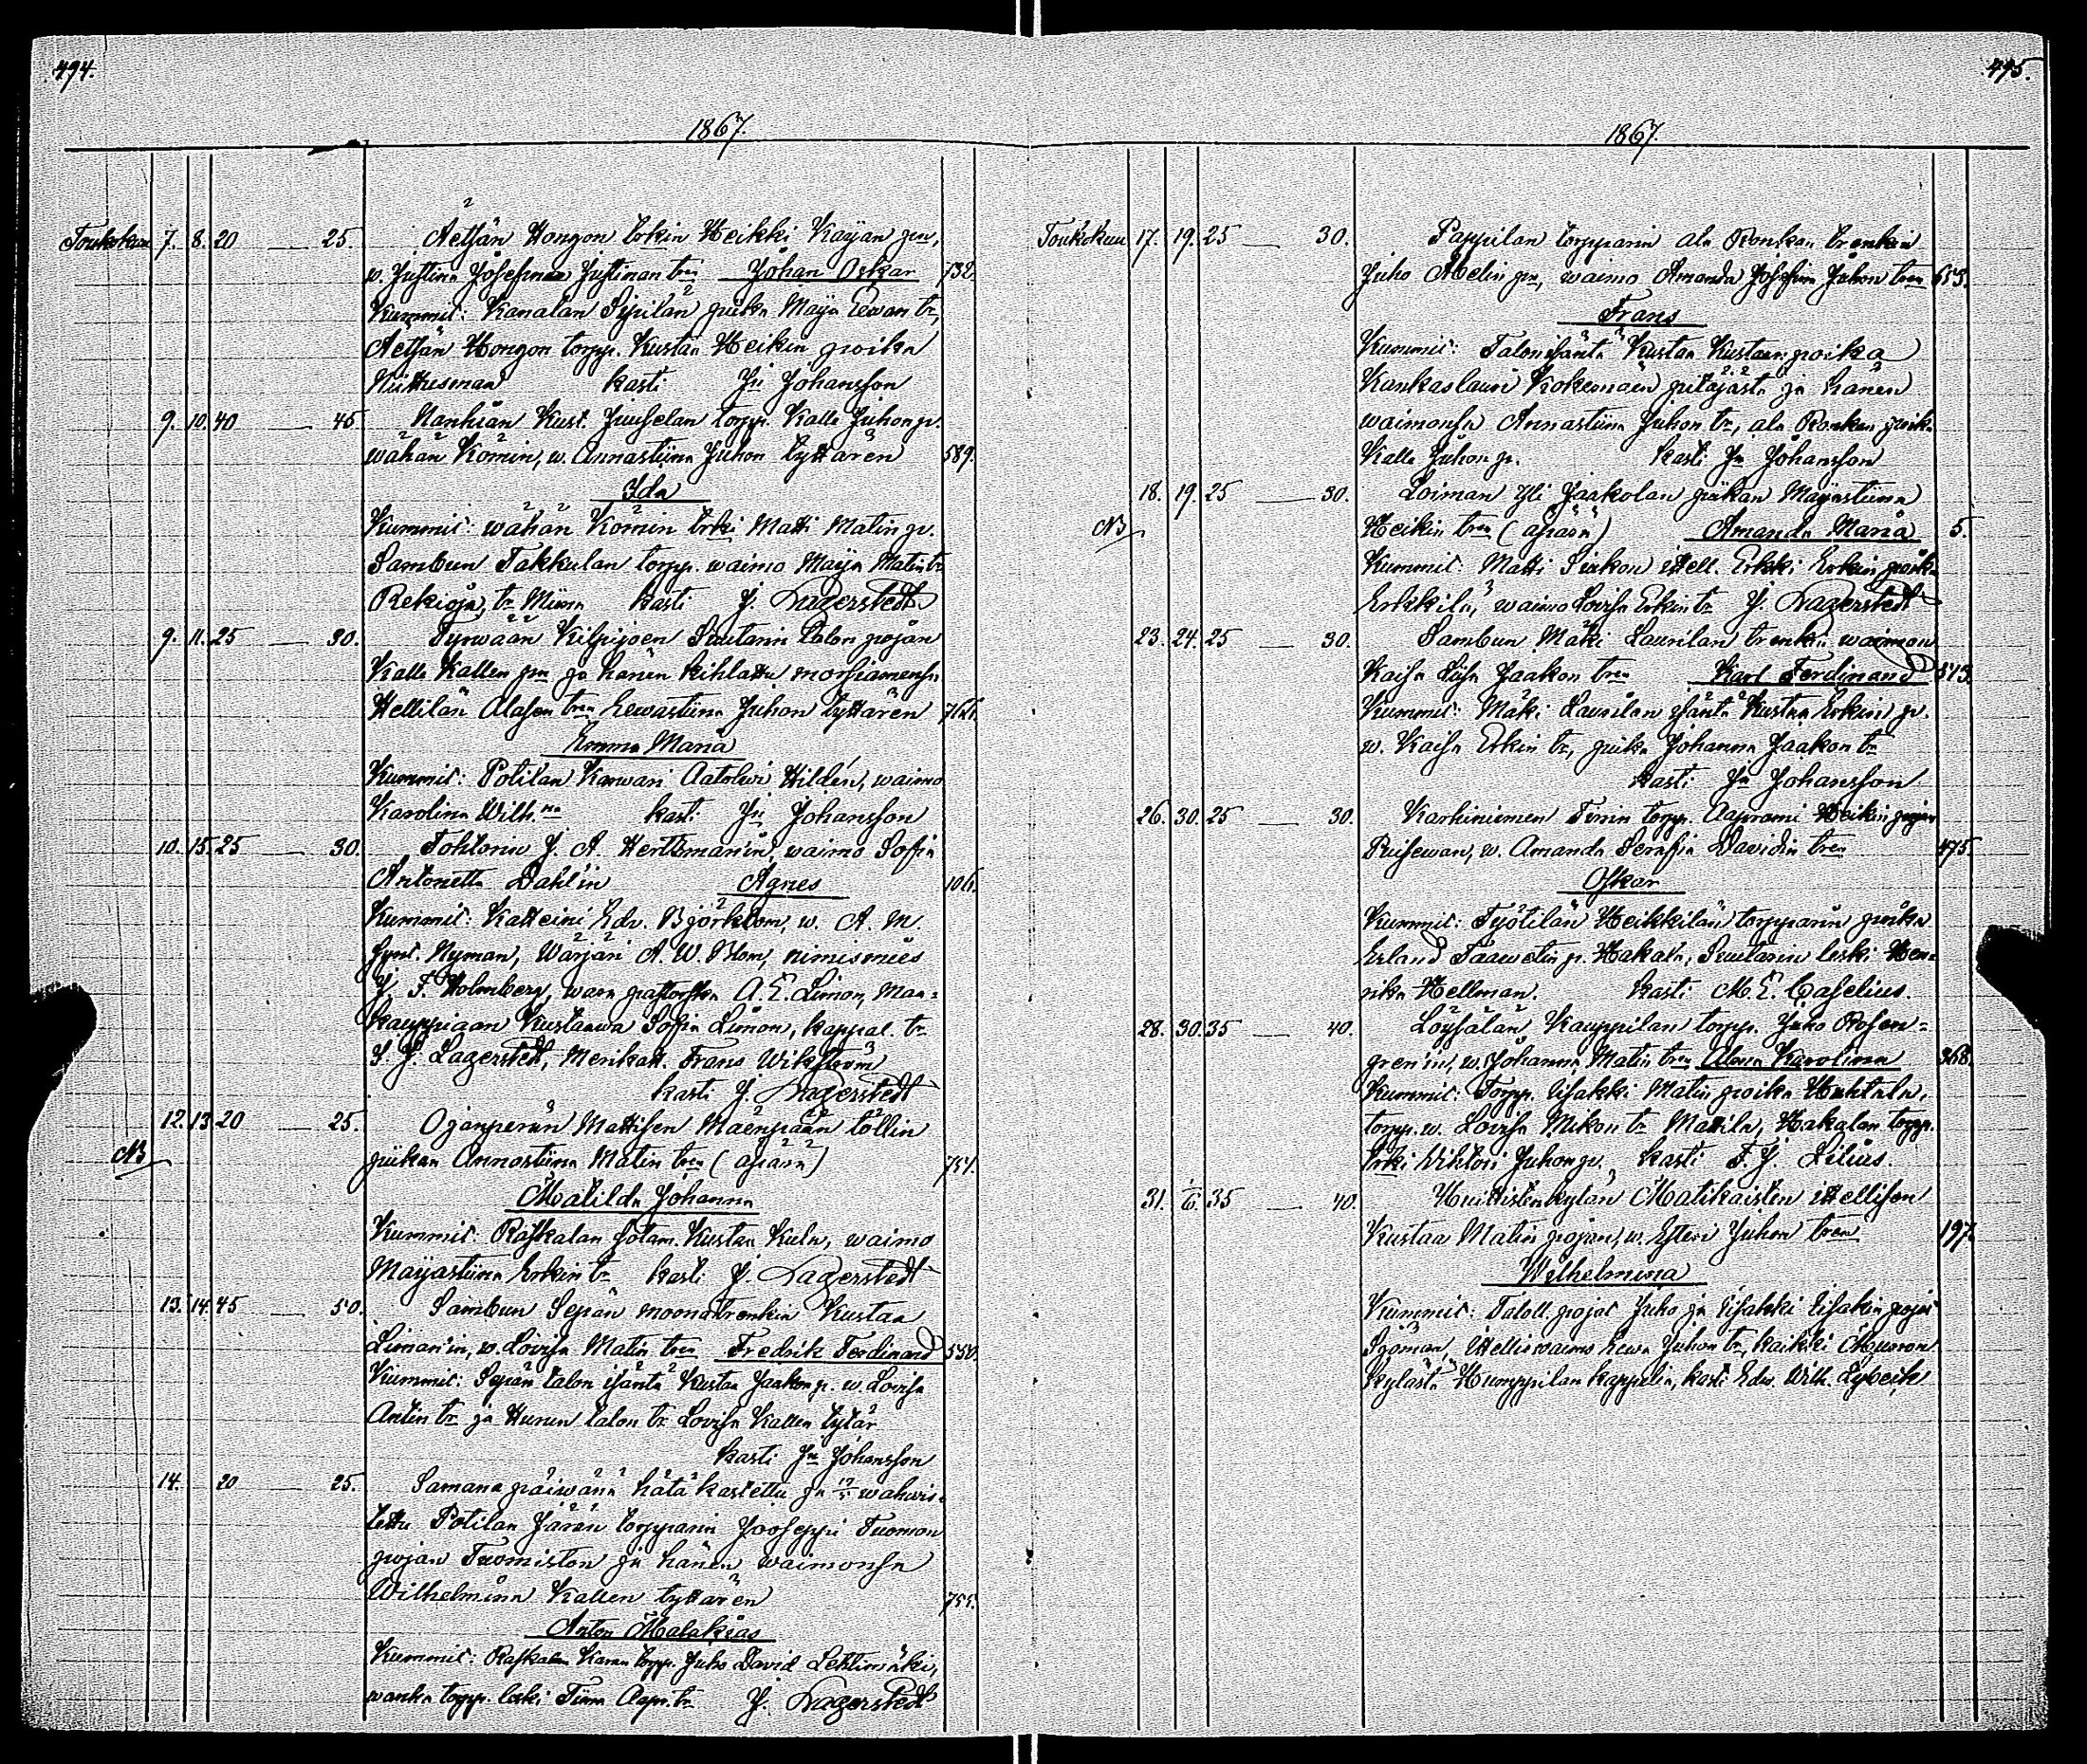 494.
1867.
Toukokuu 7. 8. 20 — 25. Äetsän Hongon torkin Heikki Kayan pn,
w. Justina Josefina Justinan tren Johan Oskar 732.
Kummit: Kanalan Sipilän piika Maija Eewan tr,
Äetsän Hongon torpp. Kustaa Heikin poika
kasti Jn Johansson
9. 10. 40 — 45 Nanhian Kust. Juuselan torpp. Kalle Juhon p.
wähän Kömin, w. Annastiina Juhon tyttären 589.
Ida
Kummit: wähän Kömin trki Matti Matin p.
Sambun Takkulan torpp. waimo Maija Matin tr
Rekioja, tr Miina kasti J. Lagerstedt
9. 11. 25 — 30. Tyrwään Kilpijoen Ruutarin talon pojan
Kalle Kallen pn ja hänen kihlattu morsiamensa
Hellilän Alasen tren Eewastiina Juhon tyttären
Emma Maria
Kummit: Potilan Karwari Aatolwi Hildén, waimo
Karolina Wilh.na kasti Jn Johansson
10. 15. 25 — 30. Tohtorin J. A. Hertzman'in, waimo Sofia
Antonetta Dahlin Agnes 106.
Kummit: Katteini Edv. Björklom, w. A. M.
synt. Nyman, Wärjäri A. W. Blom, nimismies
J. F. Holmberg, wara pastorska A. E. Limon, Maa-
kauppiaan Kustaawa Sofia Limon, kappal. tr
S. J. Lagerstedt, Merikatt. Frans Wikström
kasti J. Lagerstedt
12. 13 20 — 25. Ojanperän Mattisen Mäenpään töllin
NB piikan Annastiina Matin tren (apärä) 754.
Matilda Johanna
Kummit: Raskalan sotam. Kustaa Kula, waimo
Maijastiina Erkin tr kasti J. Lagerstedt
13. 14. 45 — 50. Sambun Sepän moonatrenkin Kustaa
Liman'in, w. Lovisa Matin tren Fredrik Ferdinand 554.
Kummit: Sepän talon isäntä Kustaa Jaakon p. w. Lovisa
Antin tr ja Hurun talon tr Lovisa Kallen tytär
kasti Jn Johansson
14. 20 — 25. Samana päiwänä hätäkastettu ja wahwis-
tettu Potilan Järän torpparin Jooseppi Tuomon
pojan Tuomiston ja hänen waimonsa
Wilhelmiina Kallen tyttären 755.
Anton Malakias
Kummit: Raskalan Karan torpp. Juho David Lehtimäki,
wanha torpp. leski Tiina Aapr. tr J. Lagerstedt
495.
1867.
Toukokuu 17. 19. 25 — 30. Pappilan torpparin ala Ronkan trenkin
Juho Abelin pn, waimo Amanda Josefina Juhon tren 653.
Frans
Kummit: Talonisäntä Kustaa Kustaan poika
Kankaslauri Kokemäen pitäjästä ja hänen
waimonsa Annastiina Juhon tr, ala Ronkan poik.
Kalle Juhon p. kasti Jn Johansson
18. 19. 25 — 30. Loiman Yli Jaakolan piikan Maijastiina
NB Heikin tren (apärä) Amanda Maria 5.
Kummit: Matti Siukon itsell. Erkki Erkin poik.
Erkkilä, waimo Lovisa Erkin tr J. Lagerstedt
23. 24. 25 — 30. Sambun Mäki Laurilan trenki waimon
Kaisa Liisa Jaakon tren Karl Ferdinand 513.
Kummit: Mäki Laurilan isäntä Kustaa Erkin p.
w. Kaisa Erkin tr, piika Johanna Jaakon tr
kasti Jn Johansson
26. 30. 25 — 30. Karhiniemen Ferin torpp. Aaprami Heikin pojan
w. Amanda Serafia Davidin tren 475.
Oskar
Kummit: Työtilän Heikkilän torpparin poika
Erland Taawetin p. Hakala, Ruutarin leski Hen-
rika Hellman. kasti M. E. Caselius.
28. 30. 35 — 40. Löysälän Kauppilan torpp. Juho Rosen-
gren'in, w. Johanna Matin tren Alma Karolina 368.
Kummit: Torpp. Iisakki Matin poika Huhtala,
torpp. w. Lovisa Mikon tr Mattila, Hakalan torpp.
trki Wihtori Juhon p. kasti F. J. Lilius.
31. 1/6. 35 — 40. Huittistenkylän Matikaisten itsellisen
Kustaa Matin pojan, w. Esteri Juhon tren 197.
Wilhelmina
Kummit: Taloll. pojat Juho ja Iisakki Iisakin pojat
Sjöman, Itsellis waimo Eewa Juhon tr, kaikki Murron
kylästä Humppilan kappelin, kasti Edv. Wilh. Lybeck